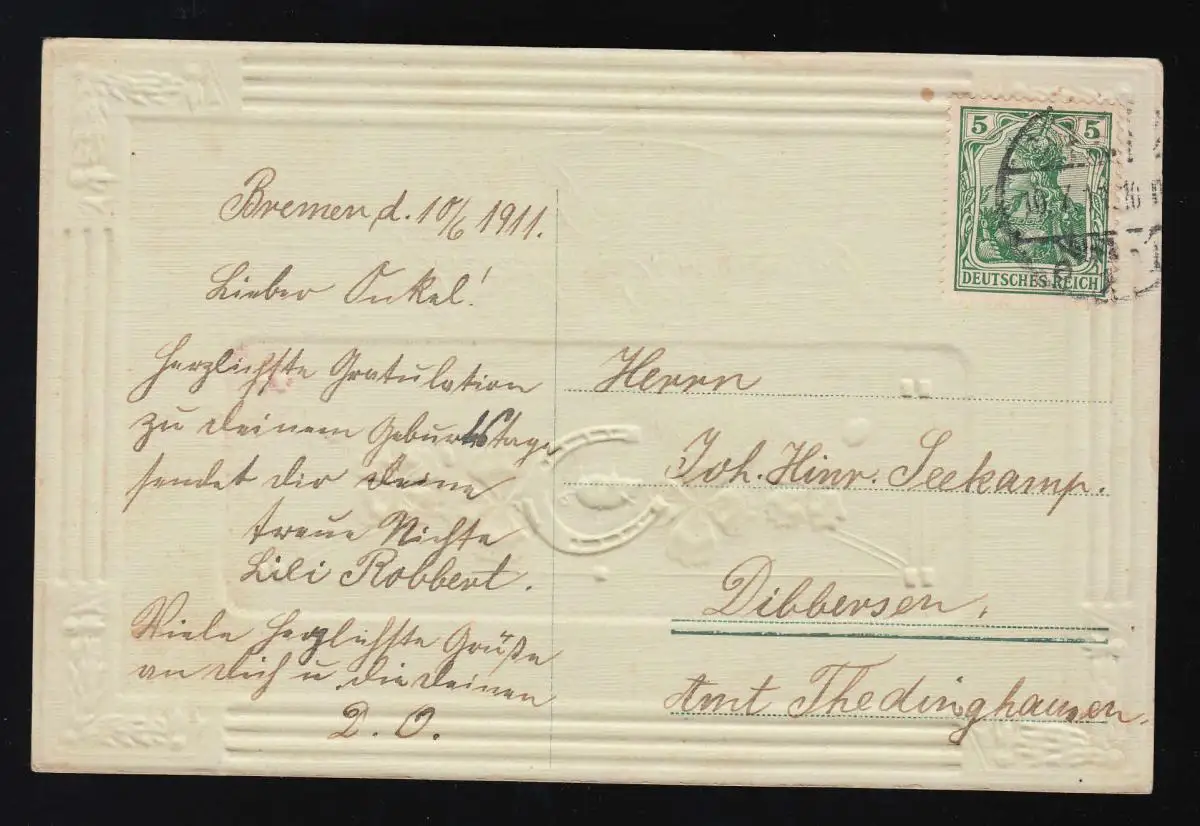 Bremen, d. 10/6 1911.
Lieber Onkel!
Herzlichste Gratulation
zu deinem Geburtstage
sendet dir deine
treue Nichte
Lili Robbert.
Viele herzlichste Grüße
an dich u. die deinen
D. O.
5 5
DEUTSCHES REICH
Herrn
Joh. Hinr. Seekamp.
Dibbersen,
Amt Thedinghausen.